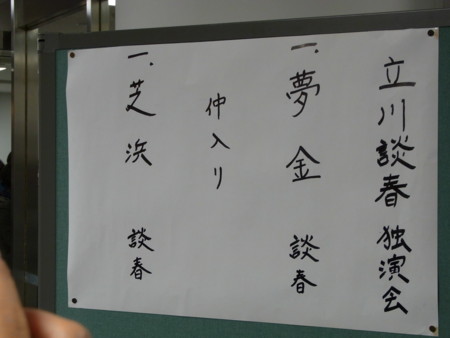 立川談春 独演会
一、夢金 談春
仲入り
一、芝浜 談春